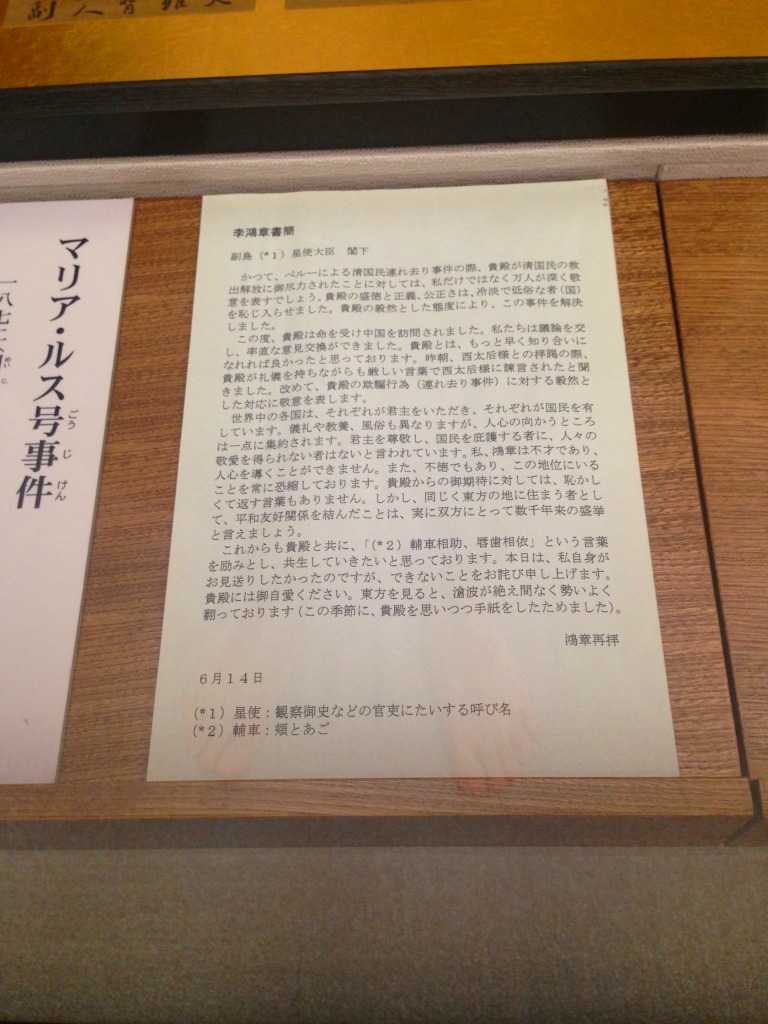 李鴻章書簡
副島（*１）星使大臣　閣下
かつて、ペルーによる清国民連れ去り事件の際、貴殿が清国民の救
出解放に御尽力されたことに対しては、私だけではなく万人が深く敬
意を表すでしょう。貴殿の盛徳と正義、公正さは、冷淡で低俗な者（国）
を恥じ入らせました。貴殿の毅然とした態度により、この事件を解決
しました。
この度、貴殿は命を受け中国を訪問されました。私たちは議論を交
し、率直な意見交換ができました。貴殿とは、もっと早く知り合いに
なれれば良かったと思っております。昨朝、西太后様との拝謁の際、
貴殿が礼儀を持ちながらも厳しい言葉で西太后様に諫言されたと聞
きました。改めて、貴殿の欺騙行為（連れ去り事件）に対する毅然と
した対応に敬意を表します。
世界中の各国は、それぞれが君主をいただき、それぞれが国民を有
しています。儀礼や教養、風俗も異なりますが、人心の向かうところ
は一点に集約されます。君主を尊敬し、国民を庇護する者に、人々の
敬愛を得られない者はないと言われています。私、鴻章は不才であり、
人心を導くことができません。また、不徳でもあり、この地位にいる
ことを常に恐縮しております。貴殿からの御期待に対しては、恥かし
くて返す言葉もありません。しかし、同じく東方の地に住まう者とし
て、平和友好関係を結んだことは、実に双方にとって数千年来の盛挙
と言えましょう。
これからも貴殿と共に、「（*２）輔車相助、唇歯相依」という言葉
を励みとし、共生していきたいと思っております。本日は、私自身が
お見送りしたかったのですが、できないことをお詫び申し上げます。
貴殿には御自愛ください。東方を見ると、滄波が絶え間なく勢いよく
翻っております（この季節に、貴殿を思いつつ手紙をしたためました）。
鴻章再拝
６月１４日
（*１）星使：観察御史などの官吏にたいする呼び名
（*２）輔車：頬とあご
マリア・ルス号事件
ごう じ けん
一八七二